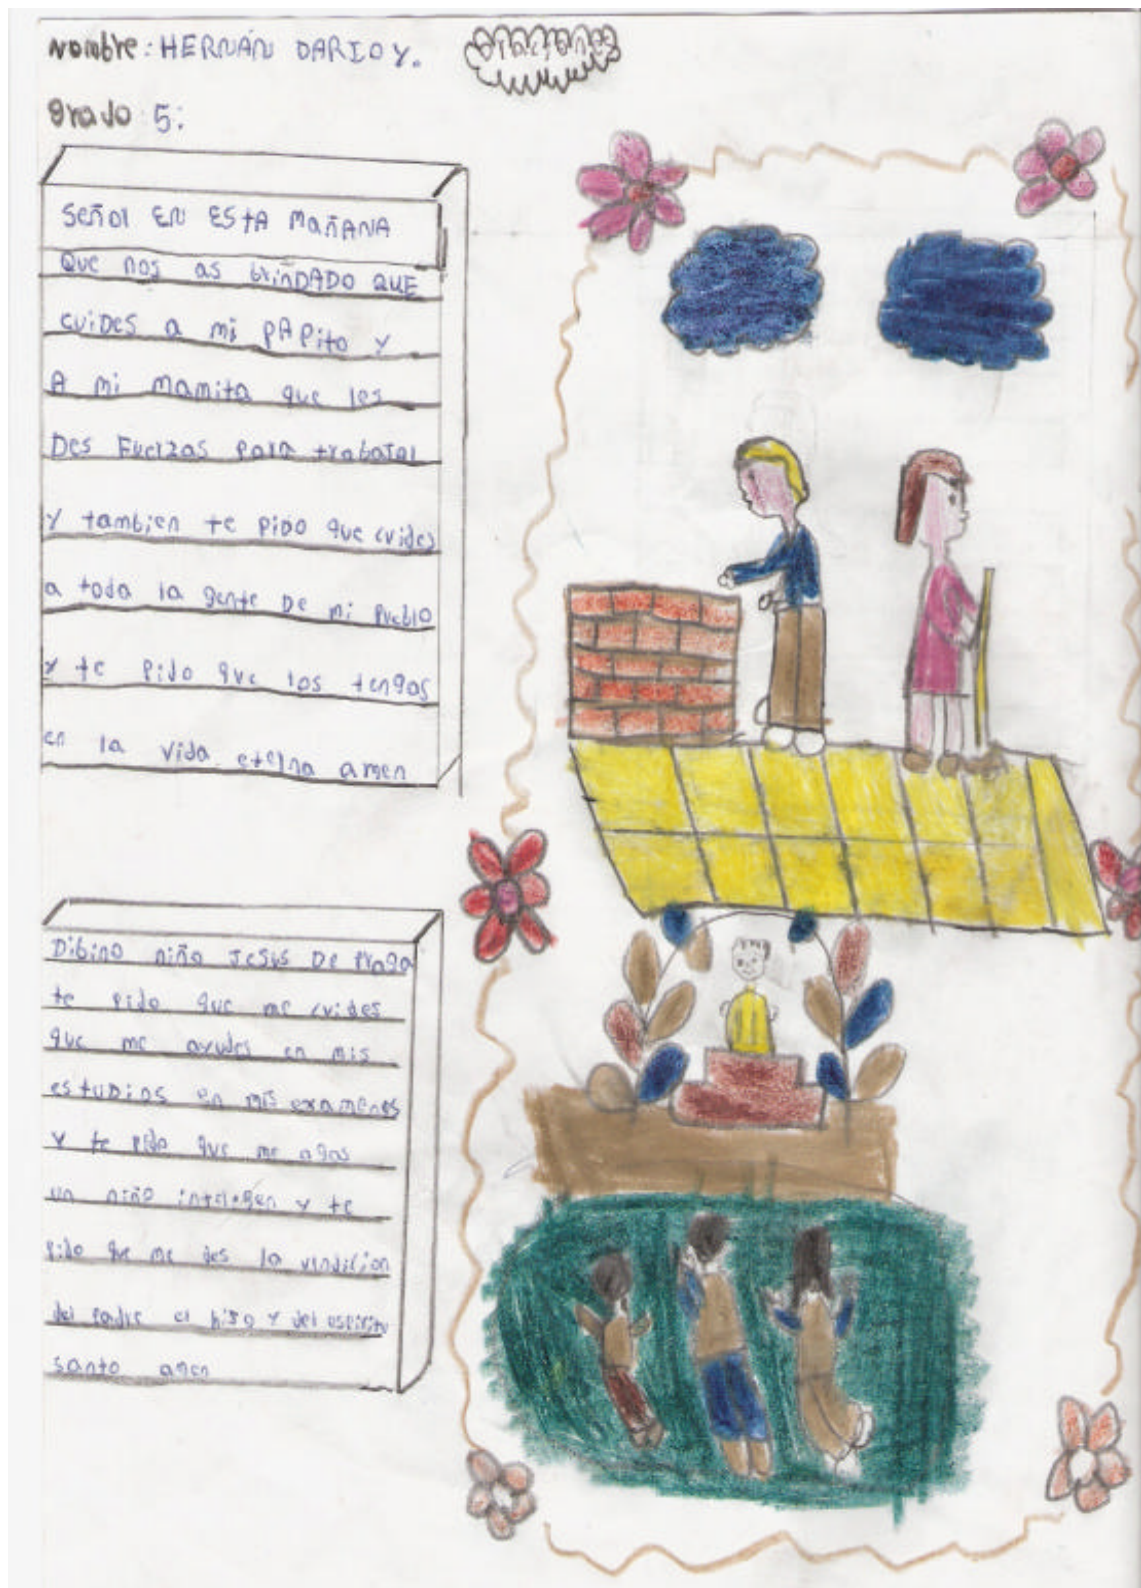 nombre: HERNÁN DARIO Y.
oraciones
grado 5:
Señor EN ESTA MAÑANA
Que nos as brinDADO QUE
cuiDes a mi PAPito y
A mi mamita que les
Des Fuerzas para trabajar
Y tambien te piDo que cuides
a toda la gente De mi Pueblo
y te Pido que los tengas
en la vida eterna amen
Dibino niño Jesus De Praga
te pido que me cuides
que me ayudes en mis
estudios en mis examenes
y te pido que me agas
un niño inteligen y te
pido que me des la vendicion
del padre el hijo y del espiritu
santo amen